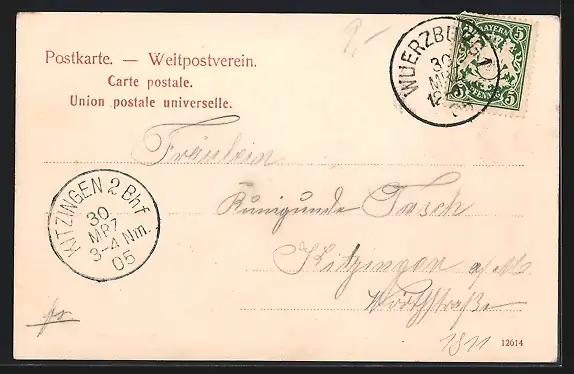 Postkarte. — Weltpostverein.
Carte postale.
Union postale universelle.
WUERZBURG 1
30
MRZ
12
BAYERN
5 5
PFENNIG
Fräulein
Kunigunde Tasch
Kitzingen a/M
Wörthstraße
KITZINGEN 2 Bhf
30
MRZ
3-4 Nm.
05
12614